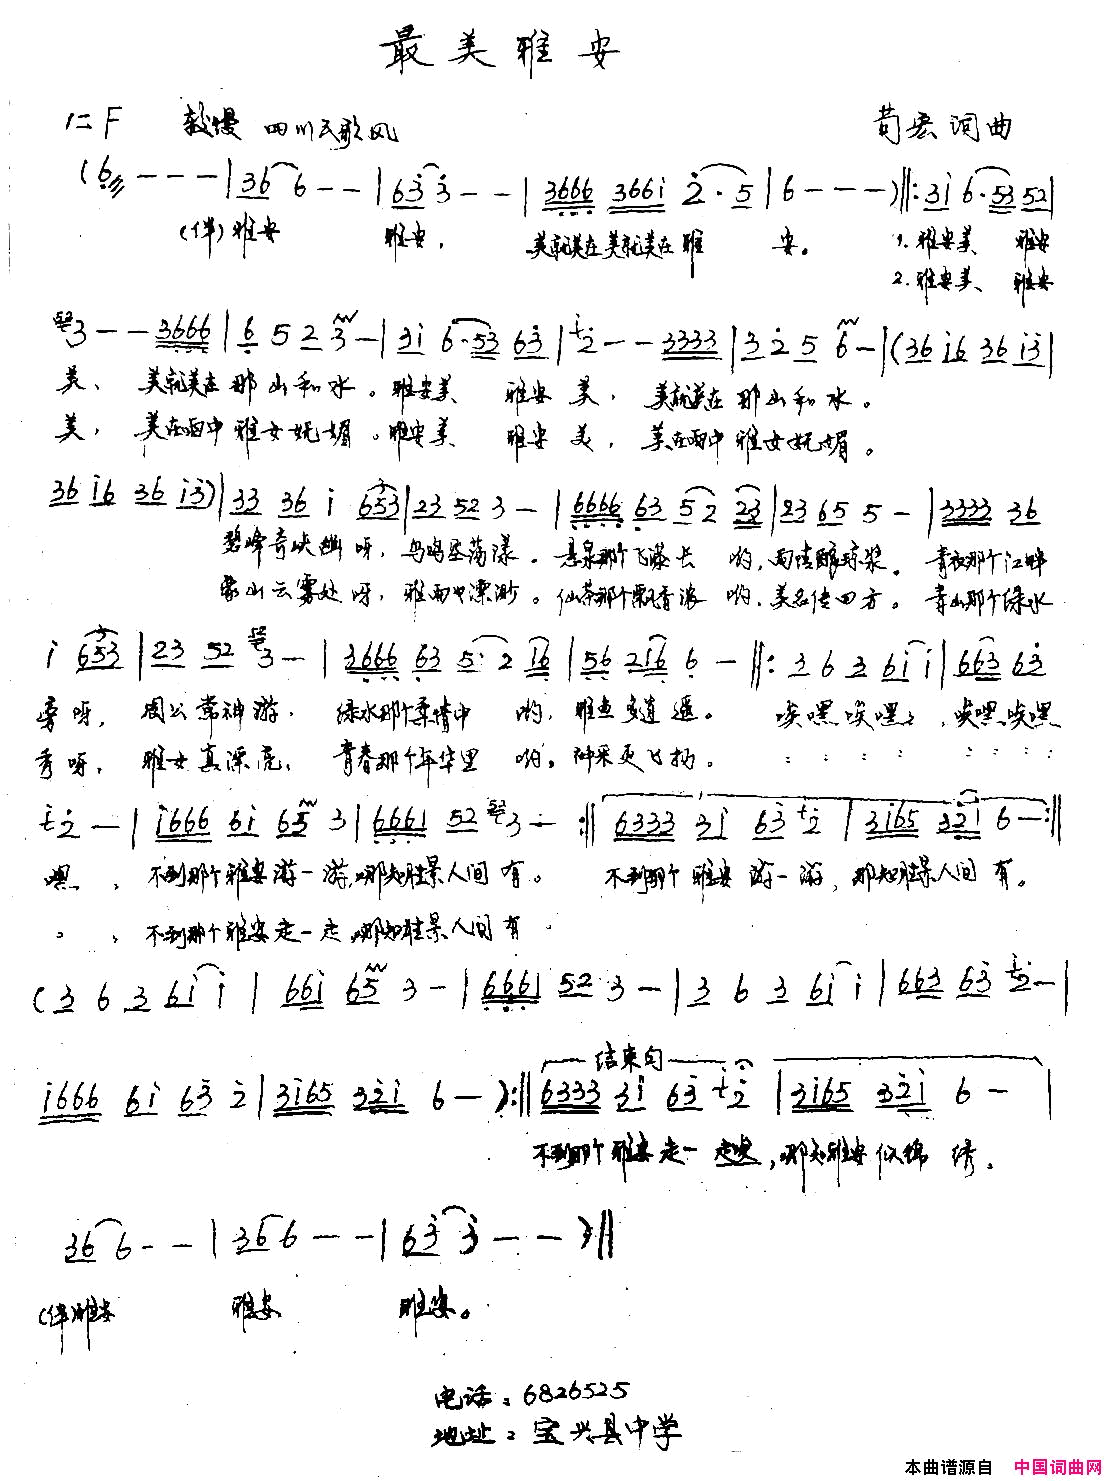 最美雅安
1=F 较慢 四川民歌风 苟宏词曲
(6 - - - | 36 6 - - | 63 3 - - | 3666 366i 2·5 | 6 - - - ) ‖: 3i 6·53 52 |
(伴)雅安 雅安, 美就美在美就美在雅 安。 1.雅安美、 雅安
2.雅安美、 雅安
523 - - 3666 | 6 5 2 3 - | 3i 6·53 63 | 2 - - 3333 | 3 2 5 6 - | (36 i6 36 i3 |
美、 美就美在那山和水。雅安美 雅安美, 美就美在那山和水。
美, 美在雨中雅女妩媚。雅安美 雅安美, 美在雨中雅女妩媚。
36 i6 36 i3) | 33 36 i 653 | 23 52 3 - | 6666 63 5 2 23 | 23 65 5 - | 3333 36
碧峰奇峡幽呀, 鸟鸣荡漾。悬泉那个飞瀑长 哟,雨 琼浆。青衣那个江畔
蒙山云雾处呀, 雅雨中漂渺。仙茶那个飘香浓 哟、美名传四方。青山那个绿水
i 653 | 23 52 523 - | 3666 63 5·2 16 | 56 216 6 - ‖: 3 6 3 6i i | 663 63
旁呀, 周公常神游. 绿水那个柔情中 哟, 雅鱼多逍遥。 唉嘿唉嘿 , 唉嘿唉嘿
秀呀, 雅女真漂亮, 青春那个年华里 哟。神采更飞扬。
2 - | i666 6i 65 3 | 6661 52 523 - :‖ 6333 3i 63 2 | 3i65 32i 6 - :‖
嘿 , 不到那个雅安游一游,哪知胜景人间有。 不到那个雅安游一游, 那知胜景人间有。
, 不到那个雅安走一走,哪知胜景人间有
(3 6 3 6i i | 66i 65 3 - | 6661 52 3 - | 3 6 3 6i i | 663 63 2 - |
i666 6i 63 2 | 3i65 32i 6 - ):‖ 结束句 6333 3i 63 2 | 3i65 32i 6 - |
不到那个雅安走一走,哪知雅安似锦绣。
36 6 - - | 36 6 - - | 63 3 - - ‖
(伴)雅安 雅安 雅安。
电话:6826525
地址:宝兴县中学
本曲谱源自 中国词曲网